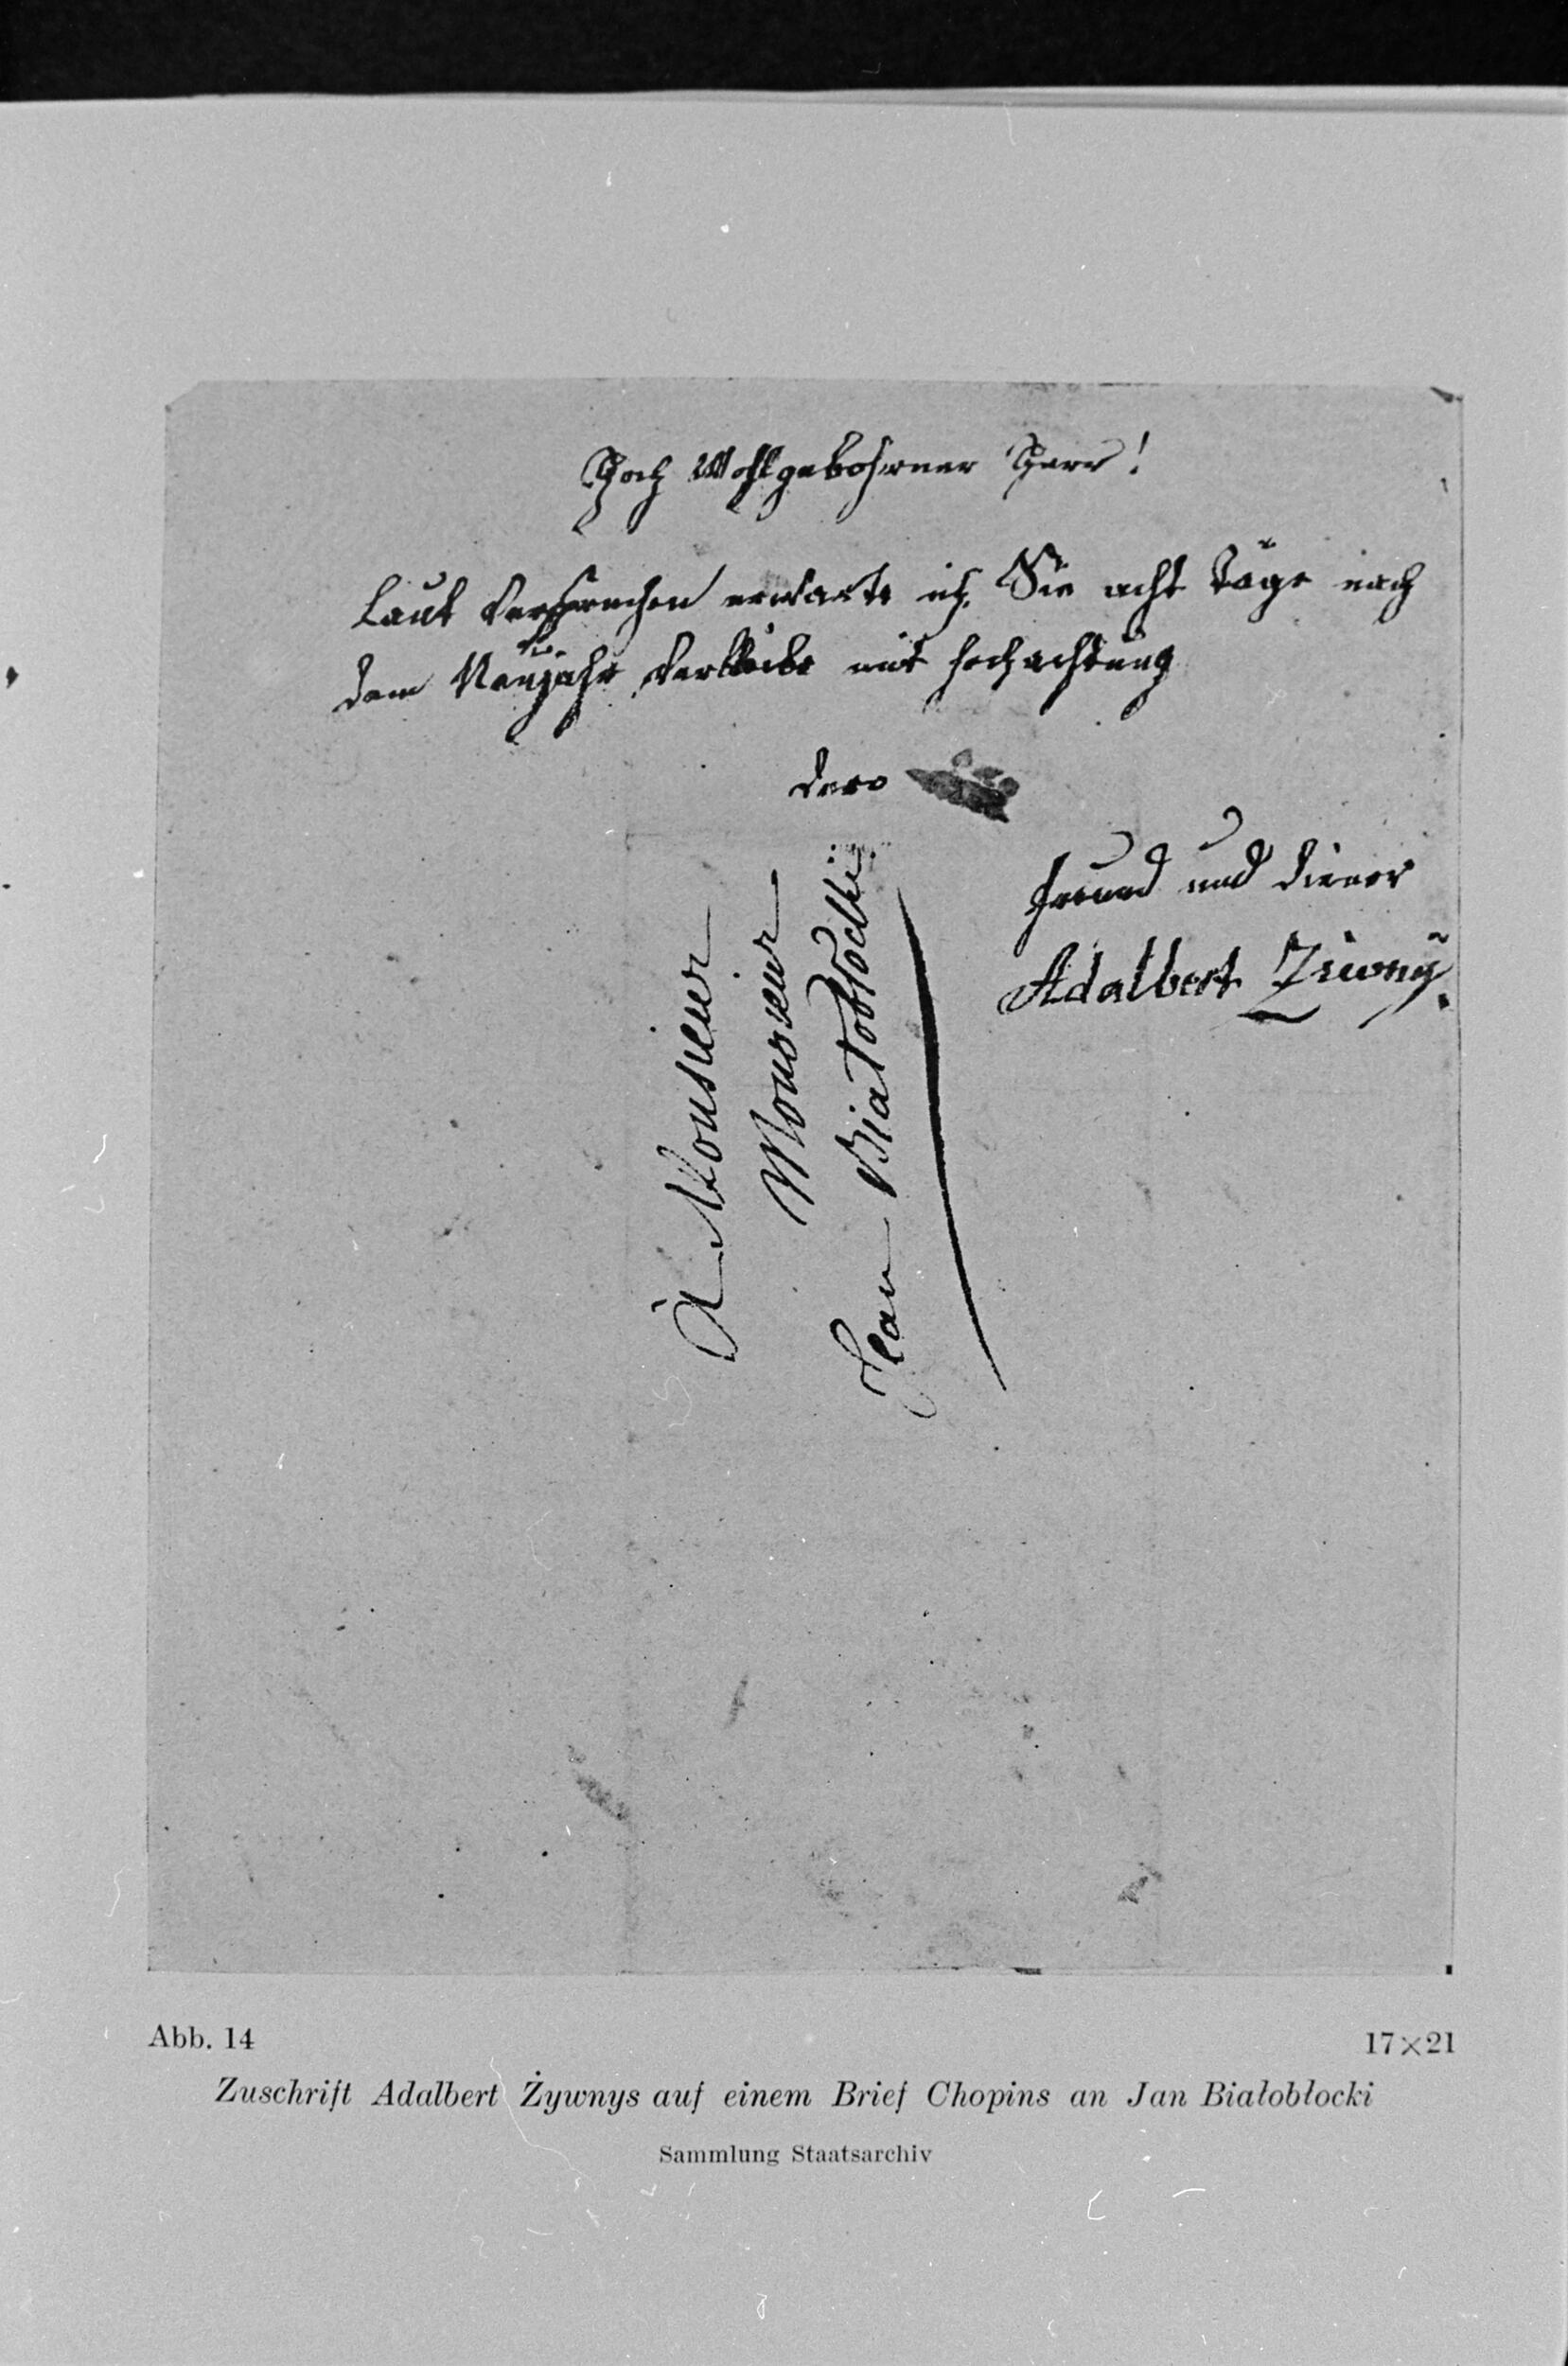 Hoch Wohlgebohrner Herr!
Laut Versprechen erwarte ich Sie acht Täge nach
dem Neujahr verbleibe mit Hochachtung
dero
Freund und Diener
Adalbert Ziwny.
À Monsieur
Monsieur
Jean Białobłocki
Abb. 14
17×21
Zuschrift Adalbert Żywnys auf einem Brief Chopins an Jan Białobłocki
Sammlung Staatsarchiv